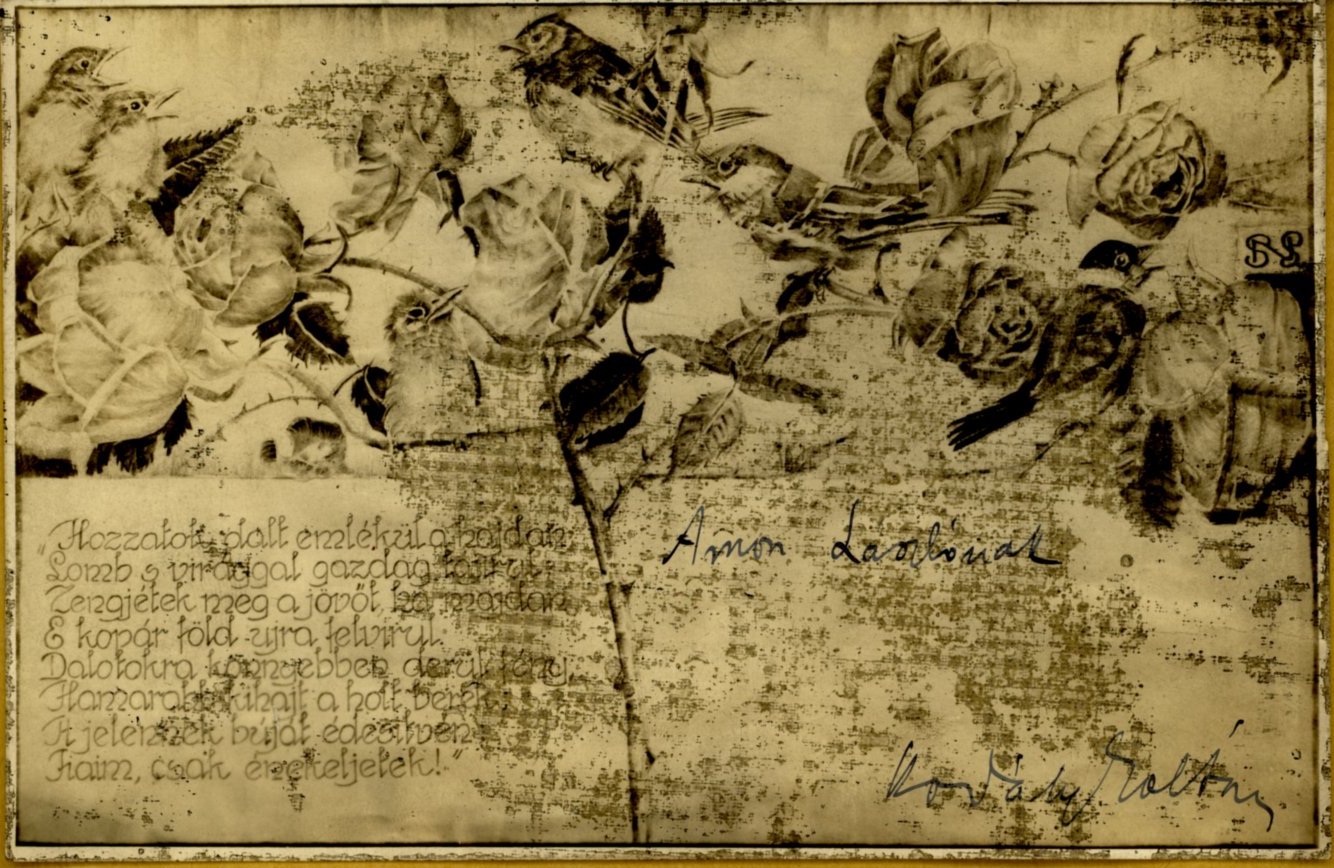 BS
"Hozzatok dalt emlékül a hajdan
Lomb s virággal gazdag tájirul;
Zengjétek meg a jövőt, ha majdan
E kopár föld ujra felvirul.
Dalotokra könnyebben derül fény,
Hamarabb kihajt a holt berek,
A jelennek búját édesítvén:
Fiaim, csak énekeljetek!"
Amon Lászlónak
Kodály Zoltán